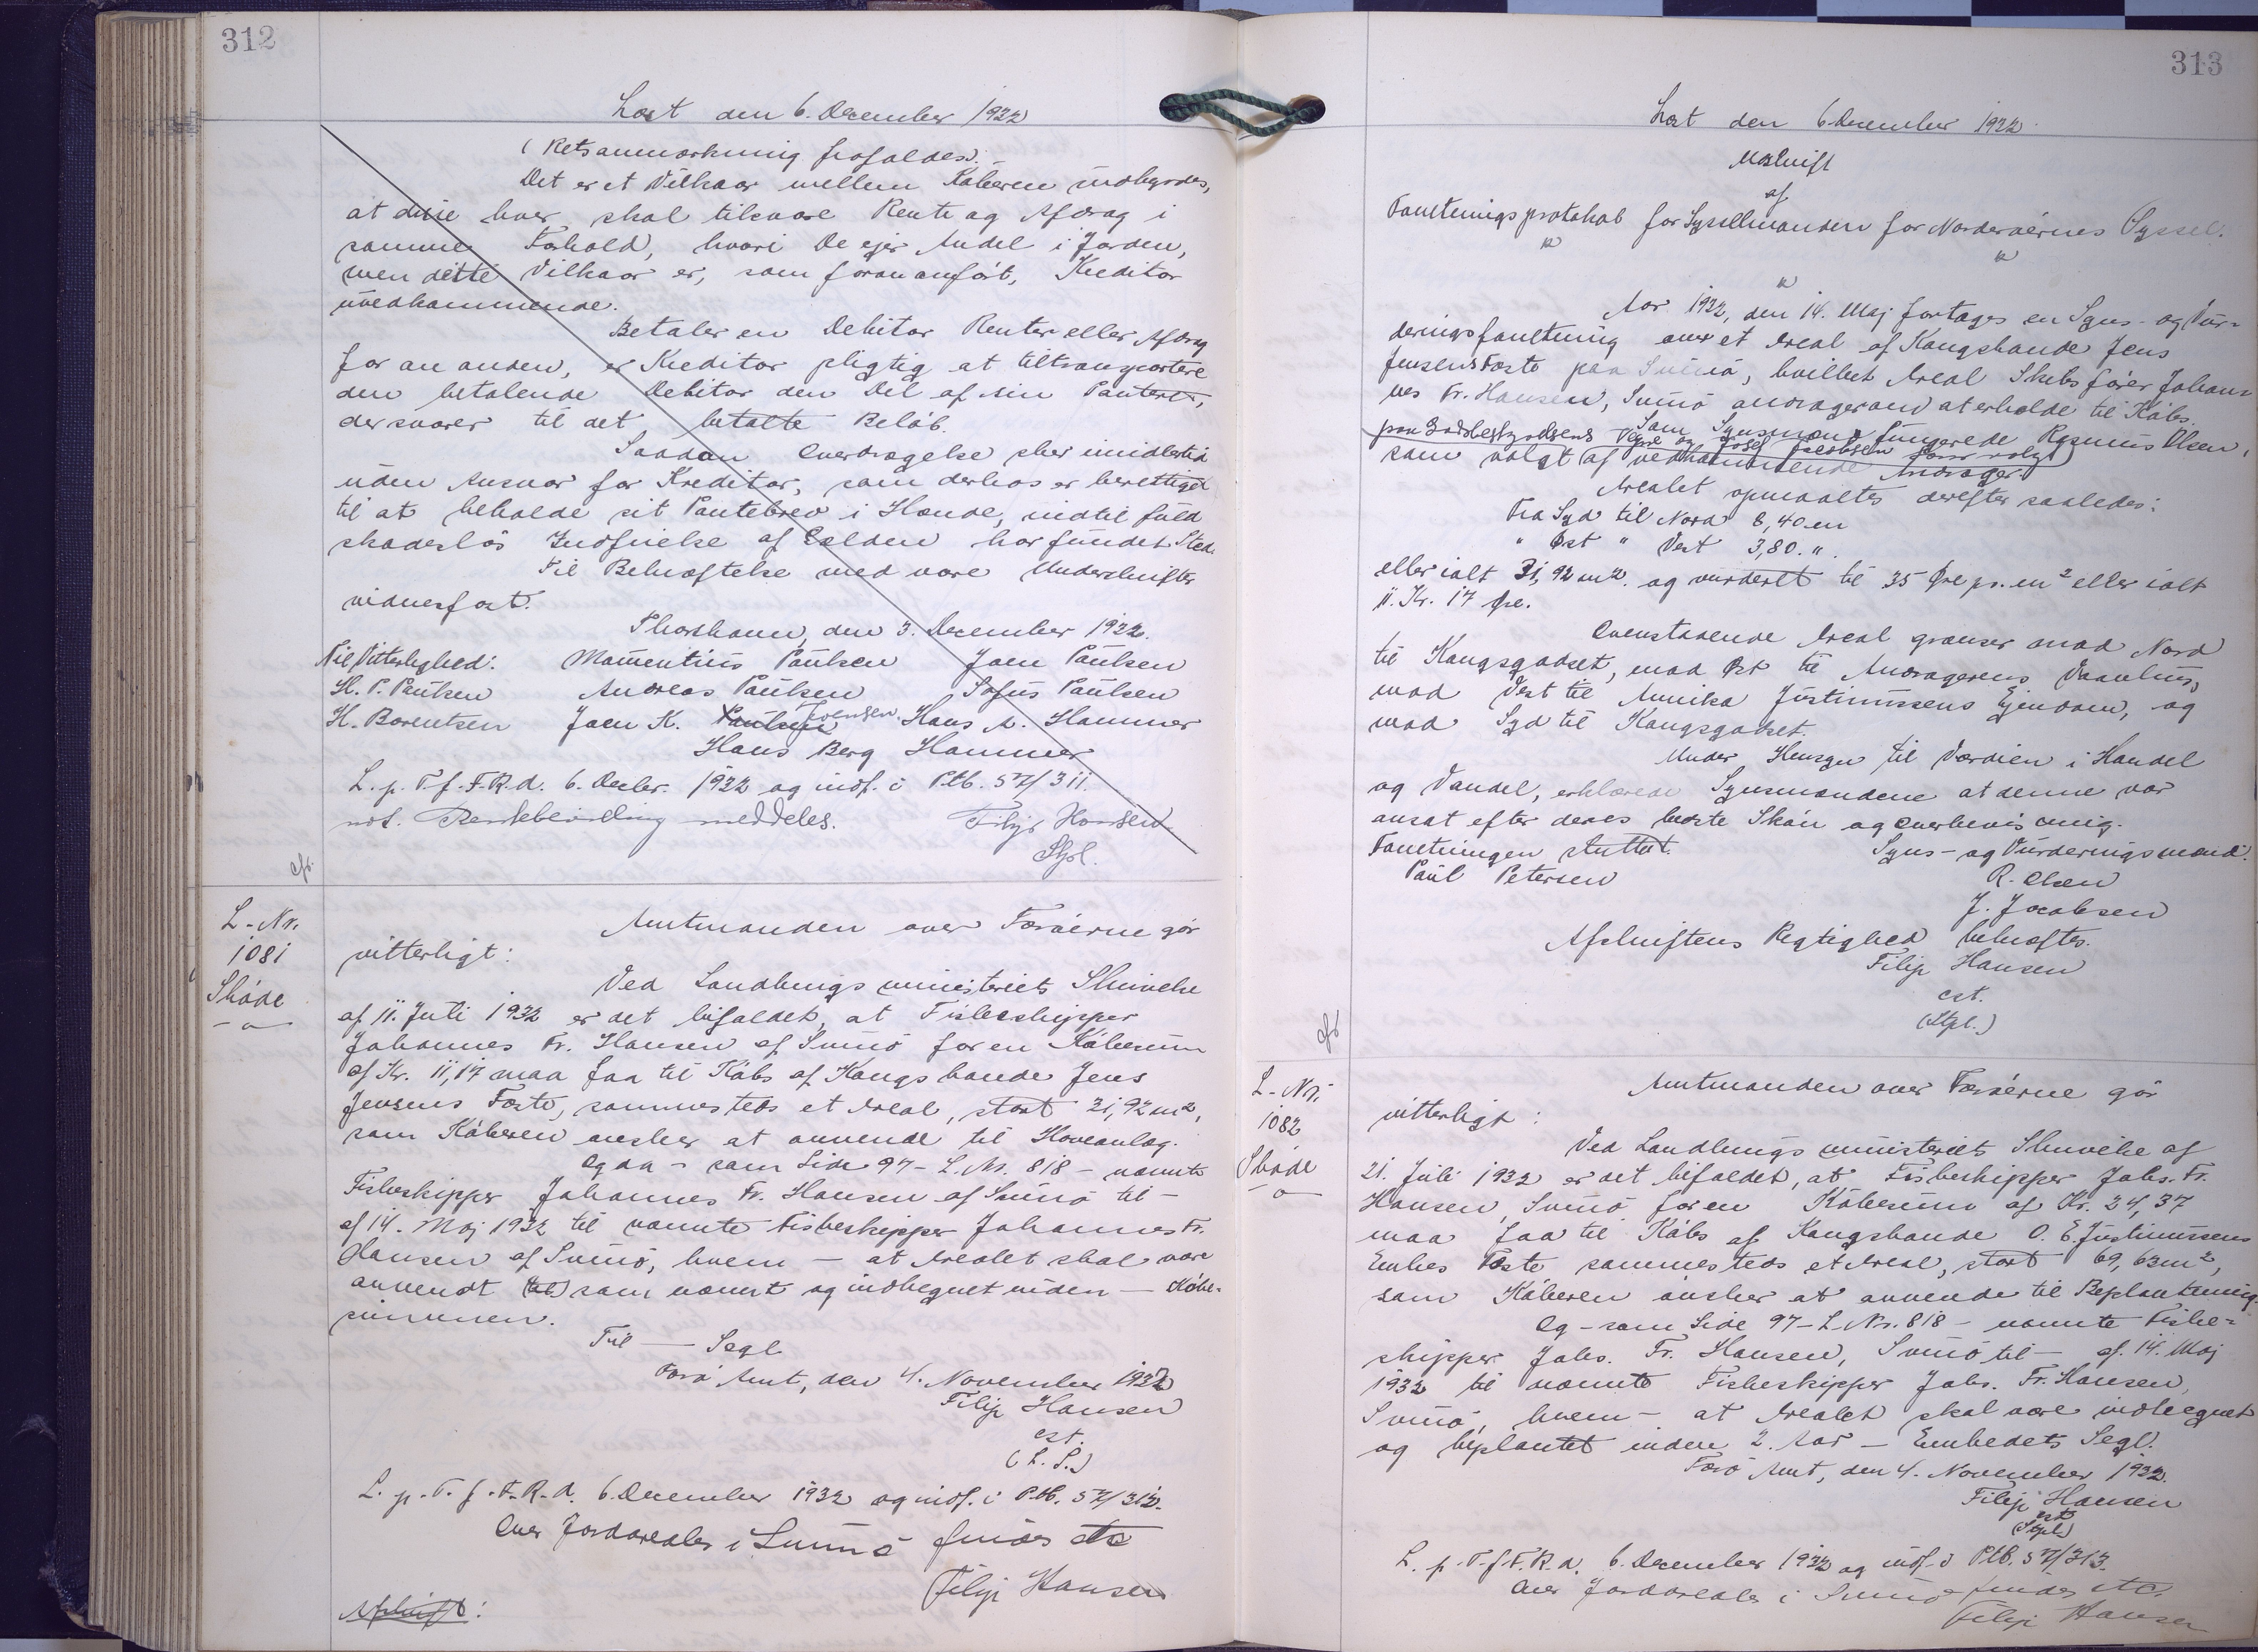 312
Læst den 6. December 1932
(Retsanmærkning frafaldes).
Det er et Vilkaar mellem Køberne indbyrdes,
at disse hver skal tilsvare Rente og Afdrag i
samme Forhold, hvori De ejer Andel i Jorden,
men dette Vilkaar er, som foran anført, Kreditor
uvedkommende.
Betaler en Debitor Renter eller Afdrag
for en anden, er Kreditor pligtig at tiltransportere
den betalende Debitor den Del af sin Panteret,
der svarer til det betalte Beløb.
Saadan Overdragelse sker imidlertid
uden Ansvar for Kreditor, som derhos er berettiget
til at beholde sit Pantebrev i Hænde, indtil fuld
skadesløs Indfrielse af Gælden har fundet Sted.
Til Bekræftelse med vore Underskrifter
vidnesfast.
Thorshavn, den 3. December 1932.
Til Vitterlighed: Momentius Paulsen Joen Paulsen
H. P. Paulsen Andreas Paulsen Sofus Paulsen
H. Barentsen Joen K. Paulsen Joensen. Hans A. Hammer
Hans Berg Hammer
L. p. T. f. F. R. d. 6. Decbr. 1932 og indf. i Ptb. 57/311.
not. meddeles. Filip Hansen
Stpl.
cfr.
L-Nr.
1081
Skøde
Amtmanden over Færøerne gør
vitterligt:
Ved Landbrugsministeriets Skrivelse
af 11. Juli 1932 er det bifaldet, at Fiskeskipper
Johannes Fr. Hansen af Svinø for en Købesum
af Kr. 11,17 maa faa til Købs af Kongsbonde Jens
Jensens Fæste, sammesteds et Areal, stort 31,92 m²,
som Køberen ønsker at anvende til Haveanlæg.
Og da - som Side 97 - L. Nr. 818 - nævnte
Fiskeskipper Johannes Fr. Hansen af Svinø til -
af 14. Maj 1932 til nævnte Fiskeskipper Johannes Fr.
Hansen af Svinø, hvem - at Arealet skal være
anvendt (til) som nævnt og indhegnet inden - Købe-
summen.
Til - Segl
Færø Amt, den 4. November 1932
Filip Hansen
cst.
(L. S.)
L. p. T. f. F. R. d. 6. December 1932 og indf. i Ptb. 57/312.
Over Jordarealer i Svinø findes etc
Filip Hansen
Afskrift:
313
Læst den 6 December 1932.
Udskrift
af
Forretningsprotokol for Sysselmanden for Norderøernes Syssel.
Aar 1932, den 14. Maj foretages en Syns- og Vur-
deringsforretning over et Areal af Kongsbonde Jens
Jensens Fæste paa Svinø, hvilket Areal Skibsfører Johan-
nes Fr. Hansen, Svinø andrager om at erholde til Købs.
Som Synsmænd fungerede Rasmus Olsen,
paa Godsbestyrelsens Vegne og Josef Jacobsen som valgt
som valgt af vedkommende Andrager
Arealet opmaaltes derefter saaledes:
Fra Syd til Nord 8,40 m
" Øst " Vest 3,80. ".
eller ialt 31,92 m². og vurderet til 35 Øre pr. m² eller ialt
11. Kr. 17 Øre.
Ovenstaaende Areal grænser mod Nord
til Kongsgodset, mod Øst til Andragerens Vaanhus,
mod Vest til Annika Justinussens Ejendom, og
mod Syd til Kongsgodset.
Under Hensyn til Værdien i Handel
og Vandel, erklærede Synsmændene at denne var
ansat efter deres bedste Skøn og Overbevisning.
Forretningen sluttet. Syns- og Vurderingsmænd:
Paul Petersen R. Olsen
J. Jacobsen
Afskriftens Rigtighed bekræftes.
Filip Hansen
cst.
(Stpl.)
cfr
L-Nr.
1082
Skøde
Amtmanden over Færøerne gør
vitterligt:
Ved Landbrugsministeriets Skrivelse af
21. Juli 1932 er det bifaldet, at Fiskeskipper Johs. Fr.
Hansen, Svinø for en Købesum af Kr. 24,37
maa faa til Købs af Kongsbonde O. E. Justinussens
Enkes Fæste sammesteds et Areal, stort 69,63 m²,
som Køberen ønsker at anvende til Beplantning.
Og - som Side 97 - L-Nr. 818 - nævnte Fiske-
skipper Johs. Fr. Hansen, Svinø til - af 14. Maj
1932 til nævnte Fiskeskipper Johs. Fr. Hansen,
Svinø, hvem - at Arealet skal være indhegnet
og beplantet inden 2. Aar - Embedets Segl.
Færø Amt, den 4. November 1932.
Filip Hansen
cst.
(Stpl.)
L. p. T. f. F. R. d. 6. December 1932 og indf. i Ptb. 57/313.
Over Jordarealer i Svinø findes etc.
Filip Hansen